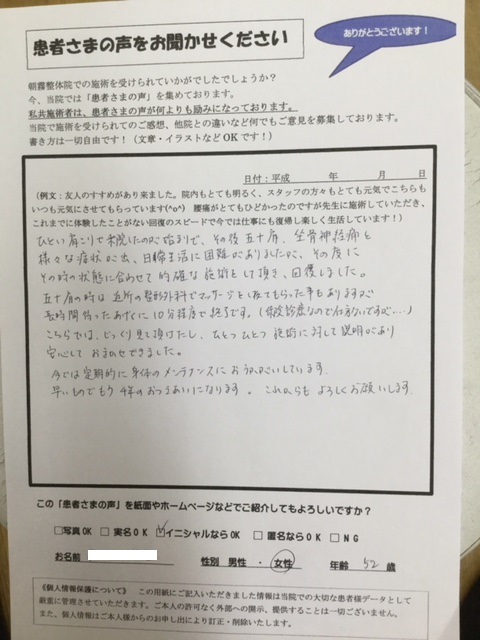 患者さまの声をお聞かせください
ありがとうございます！
朝霞整体院での施術を受けられていかがでしたでしょうか？
今、当院では「患者さまの声」を集めております。
私共施術者は、患者さまの声が何よりも励みになっております。
当院で施術を受けられてのご感想、他院との違いなど何でもご意見を募集しております。
書き方は一切自由です！（文章・イラストなどOKです！）
日付：平成　　年　　月　　日
（例文：友人のすすめがあり来ました。院内もとても明るく、スタッフの方々もとても元気でこちらも
いつも元気にさせてもらっています(^o^)　腰痛がとてもひどかったのですが先生に施術していただき、
これまでに体験したことがない回復のスピードで今では仕事にも復帰し楽しく生活しています！）
ひどい肩こりで来院したのが始まりで、その後五十肩、坐骨神経痛と
様々な症状が出、日常生活に困難がありましたが、その度に
その時の状態に合わせて的確な施術をして頂き、回復しました。
五十肩の時は近所の整形外科でマッサージをしてもらった事もありますが
長時間待ったあげくに10分程度で終了です。（保険診療なので仕方ないですが…）
こちらでは、じっくり見て頂けたし、ひとつひとつ施術に対して説明があり
安心しておまかせできました。
今では定期的に身体のメンテナンスにおうかがいしています。
早いものでもう4年のおつきあいになります。これからもよろしくお願いします。
この「患者さまの声」を紙面やホームページなどでご紹介してもよろしいですか？
□写真OK　□実名OK　☑イニシャルならOK　□匿名ならOK　□NG
お名前　性別　男性・女性　年齢　52　歳
《個人情報保護について》　この用紙にご記入いただきました情報は当院での大切な患者様データとして
厳重に管理させていただきます。ご本人の許可なく外部への開示、提供することは一切ございません。
また、個人情報はご本人様からのお申し出により訂正・削除いたします。